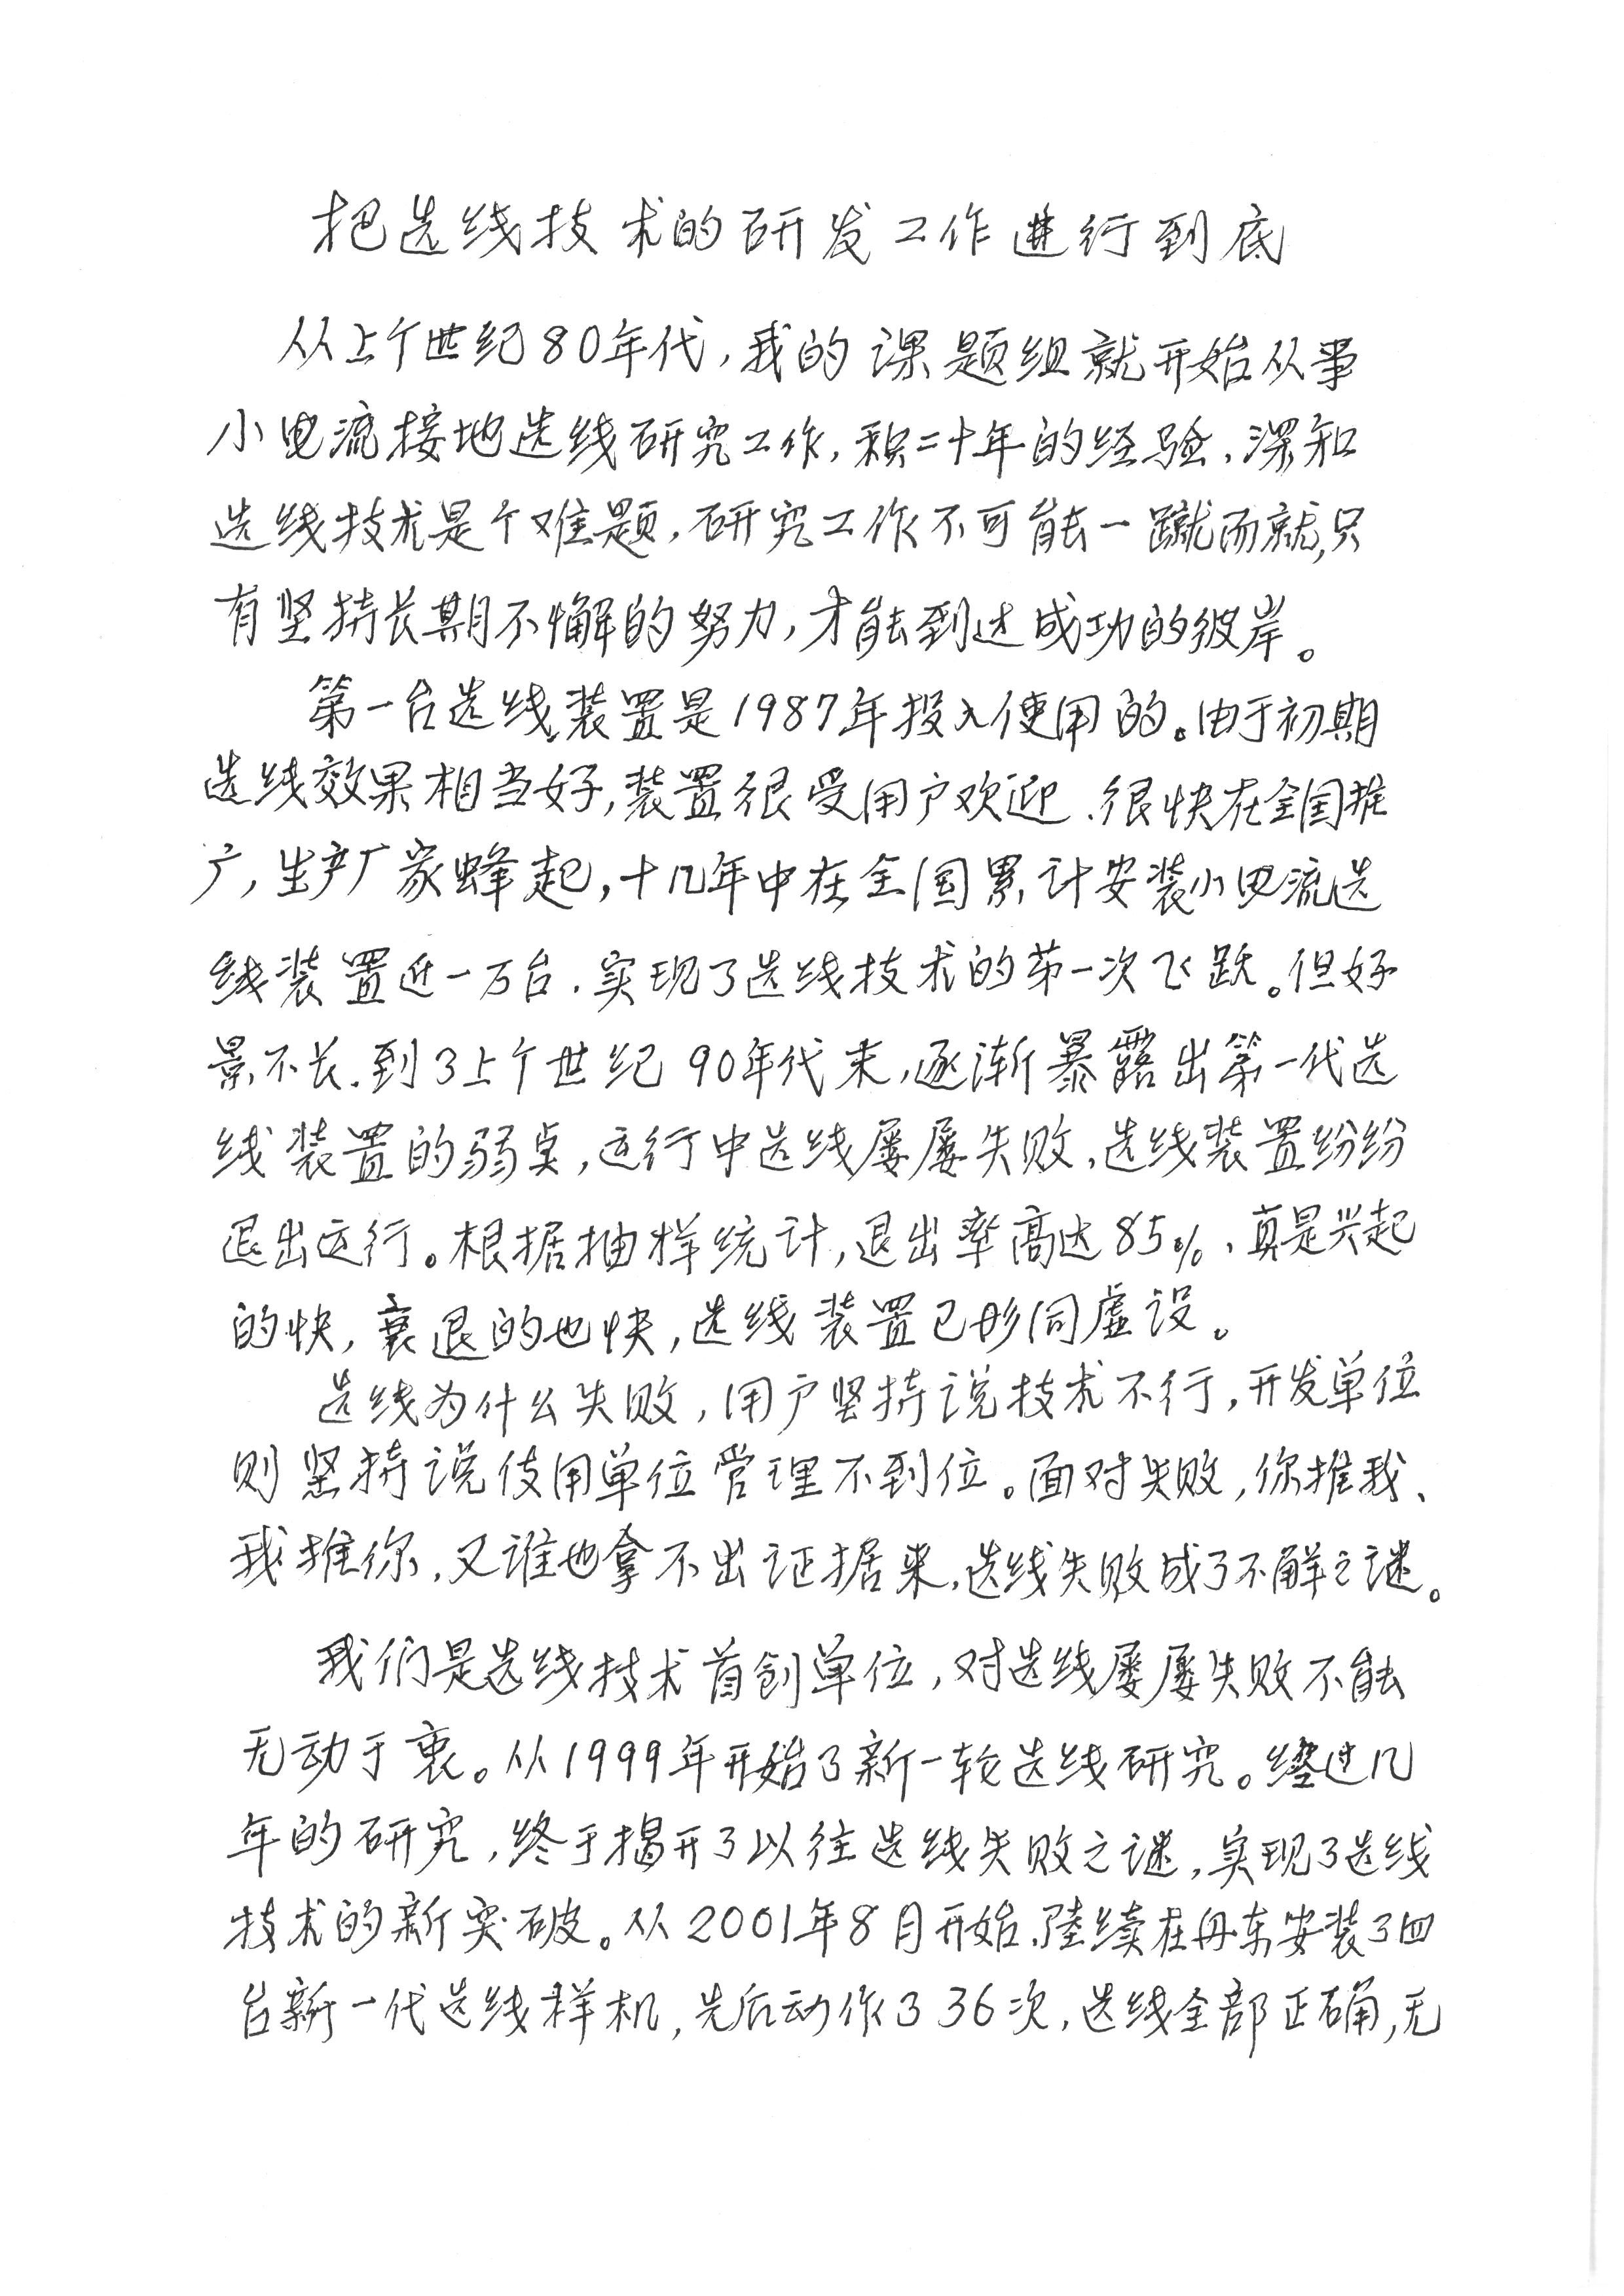 把选线技术的研发工作进行到底
从上个世纪80年代,我的课题组就开始从事
小电流接地选线研究工作,积二十年的经验,深知
选线技术是个难题,研究工作不可能一蹴而就,只
有坚持长期不懈的努力,才能到达成功的彼岸。
第一台选线装置是1987年投入使用的。由于初期
选线效果相当好,装置很受用户欢迎,很快在全国推
广,生产厂家蜂起,十几年中在全国累计安装小电流选
线装置近一万台,实现了选线技术的第一次飞跃。但好
景不长,到了上个世纪90年代末,逐渐暴露出第一代选
线装置的弱点,运行中选线屡屡失败,选线装置纷纷
退出运行。根据抽样统计,退出率高达85%,真是兴起
的快,衰退的也快,选线装置已形同虚设。
选线为什么失败,用户坚持说技术不行,开发单位
则坚持说使用单位管理不到位。面对失败,你推我、
我推你,又谁也拿不出证据来,选线失败成了不解之谜。
我们是选线技术首创单位,对选线屡屡失败不能
无动于衷。从1999年开始了新一轮选线研究。经过几
年的研究,终于揭开了以往选线失败之谜,实现了选线
技术的新突破。从2001年8月开始,陆续在丹东安装了四
台新一代选线样机,先后动作了36次,选线全部正确,无